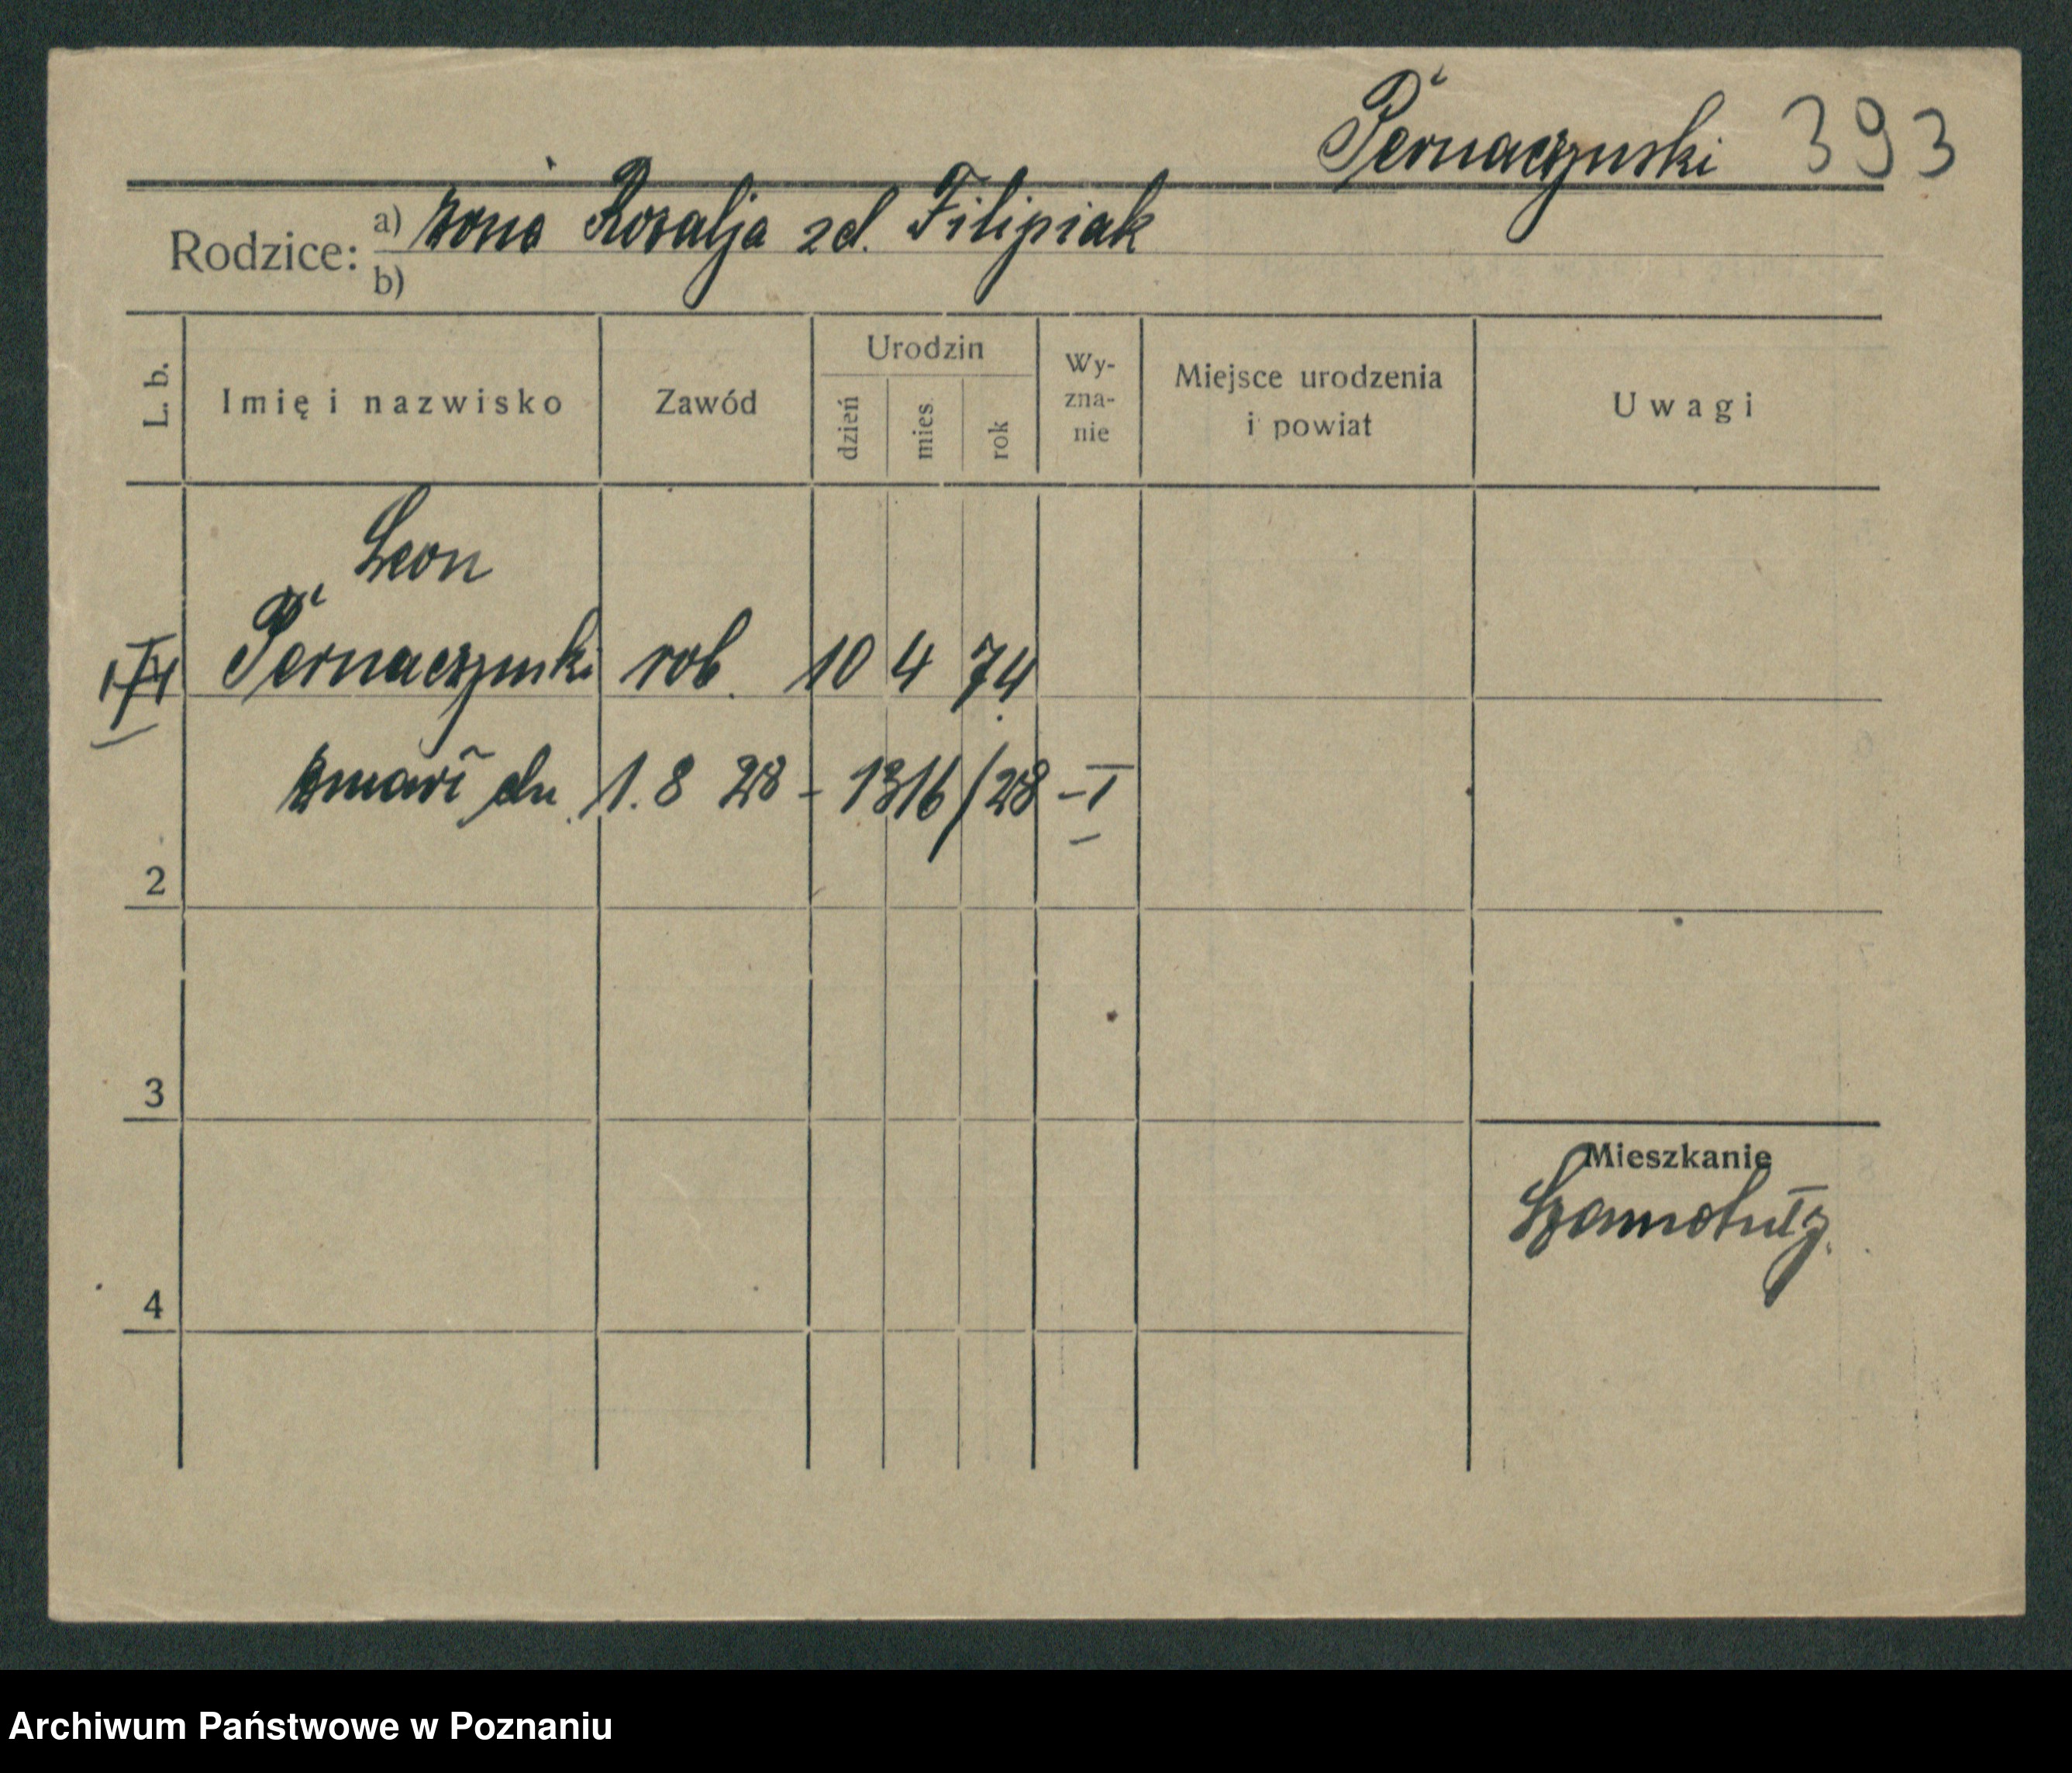 Pernaczyński 393
Rodzice: a) żona Rozalja zd. Filipiak
b)
L. b. Imię i nazwisko Zawód Urodzin dzień mies. rok Wy-zna-nie Miejsce urodzenia i powiat Uwagi
Leon
Pernaczyński rob. 10 4 74
zmarł dn. 1.8 28 - 1316/28 - I
2
3
Mieszkanie
Szamotuły
4
Archiwum Państwowe w Poznaniu